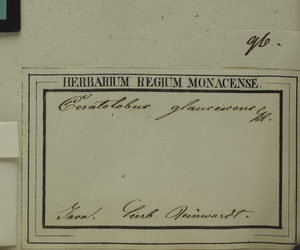 96.
HERBARIUM REGIUM MONACENSE.
Ceratolobus glaucescens Bl.
Java. Herb. Reinwardt.